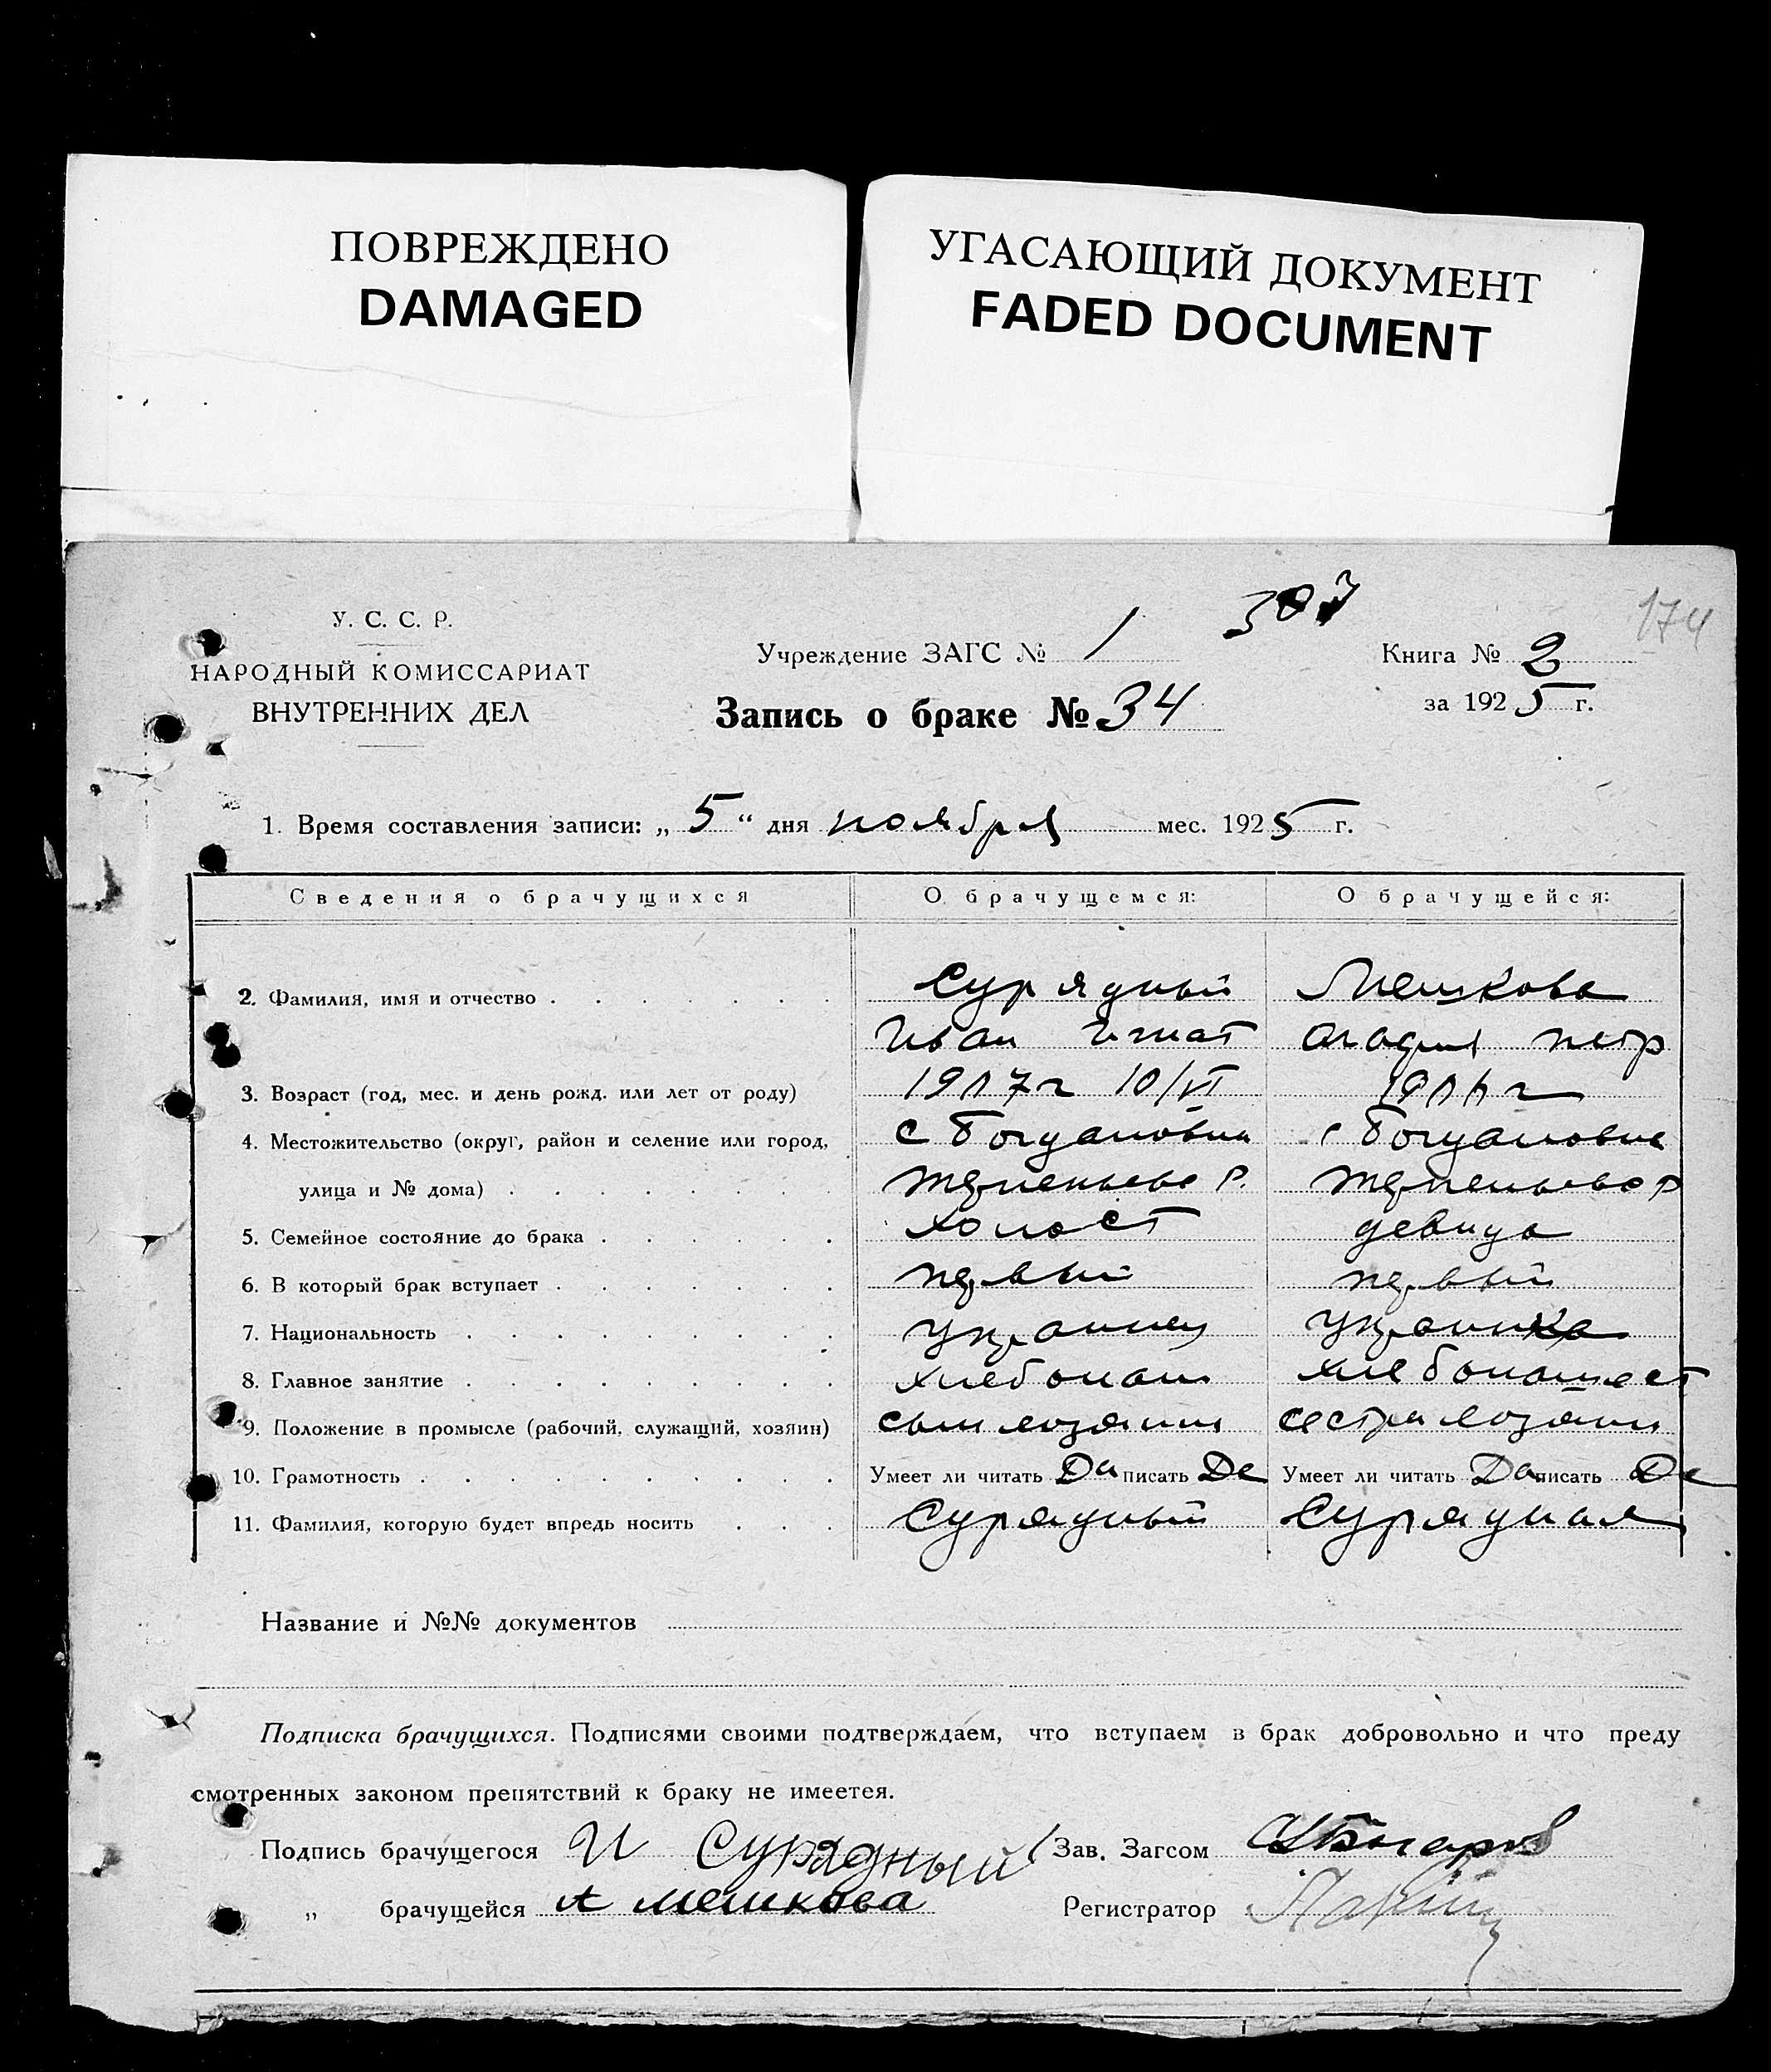 ПОВРЕЖДЕНО
DAMAGED
УГАСАЮЩИЙ ДОКУМЕНТ
FADED DOCUMENT
У. С. С. Р.
НАРОДНЫЙ КОМИССАРИАТ
ВНУТРЕННИХ ДЕЛ
307
174
Учреждение ЗАГС № 1
Книга № 2
за 1925 г.
Запись о браке № 34
1. Время составления записи: „ 5 “ дня ноября мес. 1925 г.
Сведения о брачущихся О брачущемся: О брачущейся:
2. Фамилия, имя и отчество Сурядный Мешкова
Иван Игнат Агафия петр
3. Возраст (год, мес. и день рожд. или лет от роду) 1907 г 10/VI
4. Местожительство (округ, район и селение или город, с Богдановки с Богдановке
улица и № дома)
5. Семейное состояние до брака холост девица
6. В который брак вступает первый первый
7. Национальность украинец украинка
8. Главное занятие хлебопаш хлебопашест
9. Положение в промысле (рабочий, служащий, хозяин) сын хозяина сестра хозяина
10. Грамотность Умеет ли читать Да писать Да Умеет ли читать Да писать Да
11. Фамилия, которую будет впредь носить Сурядный Сурядная
Название и №№ документов
Подписка брачущихся. Подписями своими подтверждаем, что вступаем в брак добровольно и что преду
смотренных законом препятствий к браку не имеетея.
Подпись брачущегося И Сурядный Зав. Загсом
„ брачущейся А мешкова Регистратор